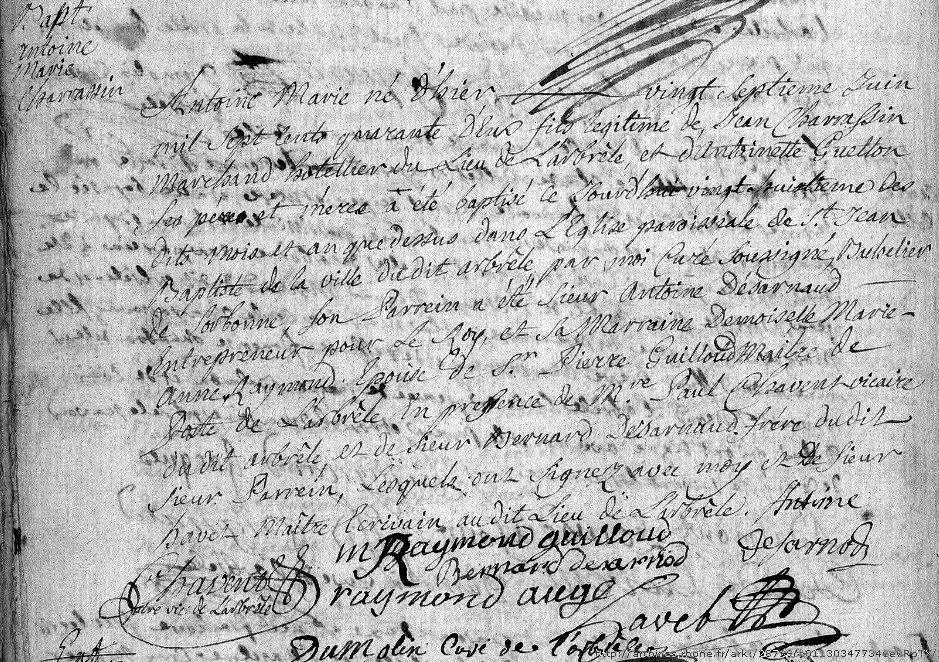 Bapt.
Antoine
Marie
Charrassin
Antoine Marie né d'hier vingt Septieme Juin
mil Sept cents quarante Deux fils legitime de Jean Charrassin
Marchand hotellier du Lieu de Larbrêle et d'Antoinette Guetton
Ses peres et meres à été baptisé le Jourdhui vingt-huistieme des
dits mois et an que dessus dans L'Eglise paroissiale de St. Jean
Baptiste de la ville du dit arbrêle par moi Curé Soussigné, Bachelier
de Sorbonne, Son Parrein a été Sieur Antoine Désarnaud
Entrepreneur pour Le Roy, et Sa Marraine Demoiselle Marie-
Anne Raymond Epouse de Sr. Pierre Guilloud Maitre de
Poste de Larbrêle En presence de Mre Paul Chavent vicaire
du dit arbrêle et de Sieur Bernard Désarnaud frère du dit
Sieur Parrein, Lesquels ont Signez avec moy et de Sieur
havet Maître Ecrivain au dit Lieu de Larbrêle. Antoine
m Raymond guilloud
Desarnod
Bernard desarnod
Chavent
vic de Larbrêle
raymond auge
havet
Dumolin Curé de l'arbrêle